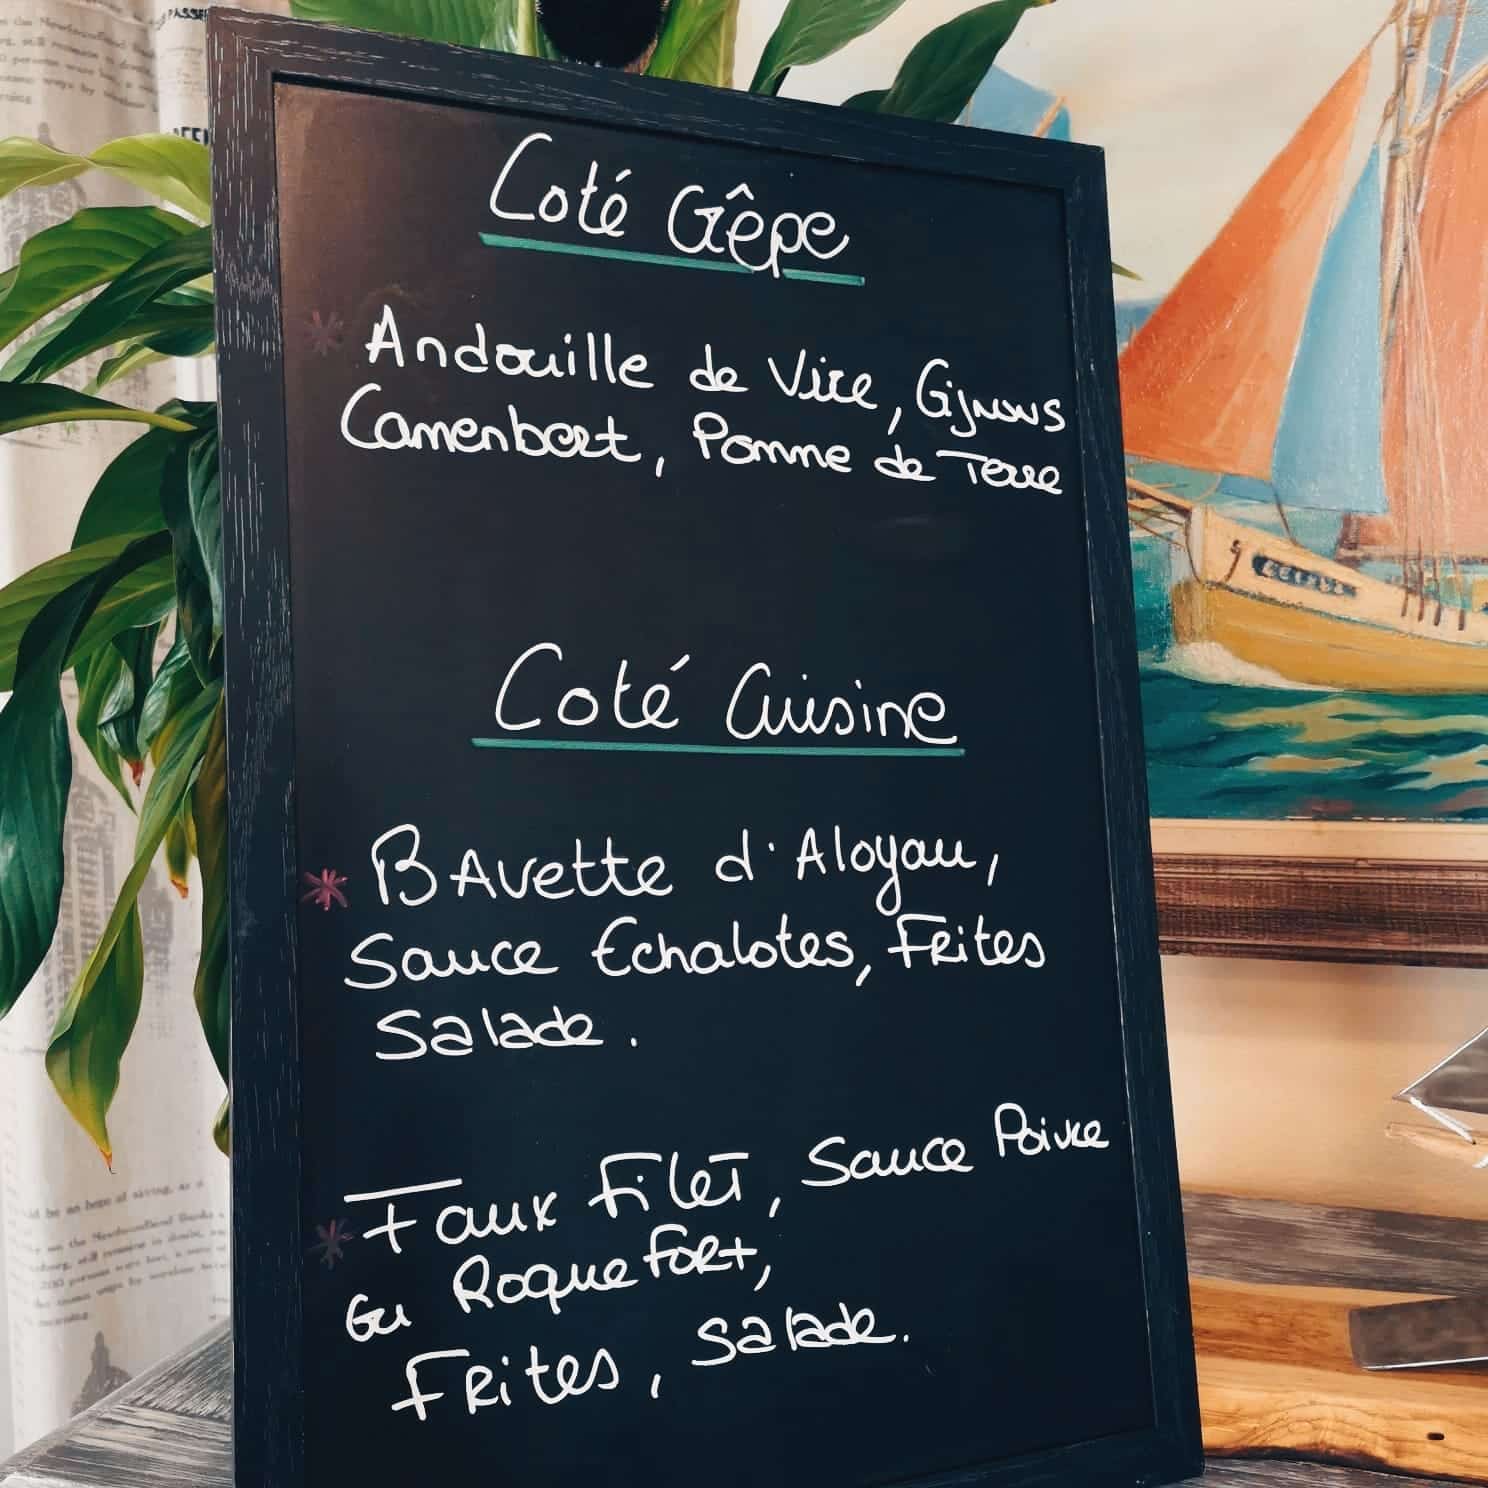 Coté Crêpe
* Andouille de Vire, Oignons
Camembert, Pomme de Terre
Coté Cuisine
* Bavette d'Aloyau,
Sauce Echalotes, Frites
Salade.
* Faux Filet, Sauce Poivre
ou Roquefort,
Frites, salade.